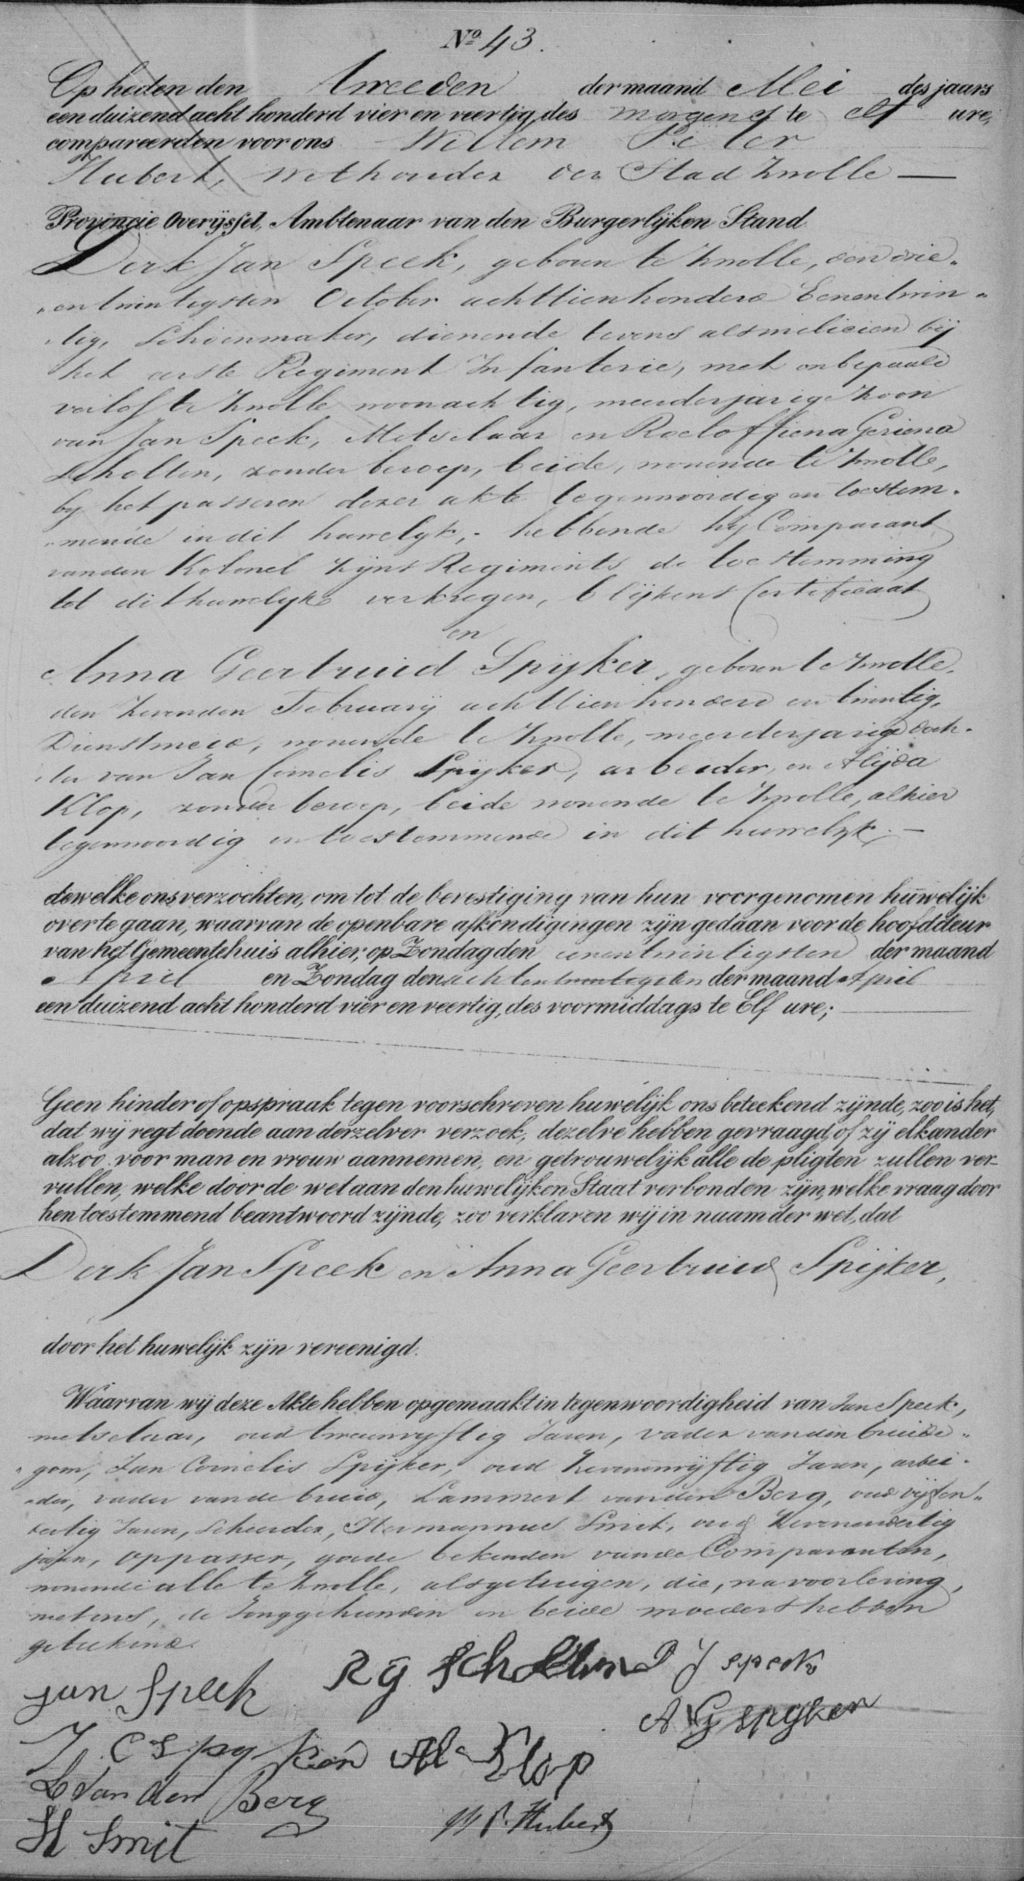 No. 43.
Op heden den Tweeden der maand Mei des jaars
een duizend acht honderd vier en veertig, des morgens te elf ure,
compareerden voor ons Willem Peter
Hubert, Wethouder der Stad Zwolle —
Provincie Overijssel, Ambtenaar van den Burgerlijken Stand
Derk Jan Speek, geboren te Zwolle, den drie-
entwintigsten October achttienhonderd Eenentwin-
tig, Schoenmaker, dienende tevens als milicien bij
het eerste Regiment Infanterie, met onbepaald
verlof te Zwolle woonachtig, meerderjarige Zoon
van Jan Speek, Metselaar en Roeloffiena Geriena
Scholten, zonder beroep, beide, wonende te Zwolle,
by het passeren dezer akte tegenwoordig en toestem-
mende in dit huwelyk, hebbende hy Comparant
van den Kolonel zyns Regiments de toestemming
tot dit huwelyk verkregen, blykens Certificaat
en
Anna Geertruid Spijker, geboren te Zwolle,
den Zevenden February achttienhonderd en twintig,
Dienstmeid, wonende te Zwolle, meerderjarige doch-
ter van Jan Cornelis Spijker, arbeider, en Alijda
Klop, zonder beroep, beide wonende te Zwolle, alhier
tegenwoordig en toestemmende in dit huwelyk. —
dewelke ons verzochten, om tot de bevestiging van hun voorgenomen huwelijk
over te gaan, waarvan de openbare afkondigingen zijn gedaan voor de hoofddeur
van het Gemeentehuis alhier, op Zondag den eenentwintigsten der maand
April en Zondag den achtentwintigsten der maand April
een duizend acht honderd vier en veertig, des voormiddags te Elf ure;
Geen hinder of opspraak tegen voorschreven huwelijk ons beteekend zijnde, zoo is het,
dat wij regt doende aan derzelver verzoek, dezelve hebben gevraagd, of zij elkander
alzoo voor man en vrouw aannemen, en getrouwelijk alle de pligten zullen ver-
vullen, welke door de wet aan den huwelijken Staat verbonden zijn, welke vraag door
hen toestemmend beantwoord zijnde, zoo verklaren wij in naam der wet, dat
Derk Jan Speek en Anna Geertruid Spijker,
door het huwelijk zijn vereenigd.
Waarvan wij deze Akte hebben opgemaakt in tegenwoordigheid van Jan Speek,
metselaar, oud tweenvyftig Jaren, vader van den bruide-
gom, Jan Cornelis Spijker, oud Zevenenvyftig Jaren, arbei-
der, vader van de bruid, Lammert van den Berg, oud vijfen-
dertig Jaren, Scheerder, Hermannus Smit, oud Zevenendertig
jaren, oppasser, goede bekenden van de Comparanten,
wonende alle te Zwolle, als getuigen, die, na voorlezing,
met ons, de Jonggehuwden en beide moeders hebben
geteekend.
Jan Speek R G Scholten D J Speek
A G Spyker
J. C Spyker Al Klop
L Van den Berg
W P. Hubert
H Smit